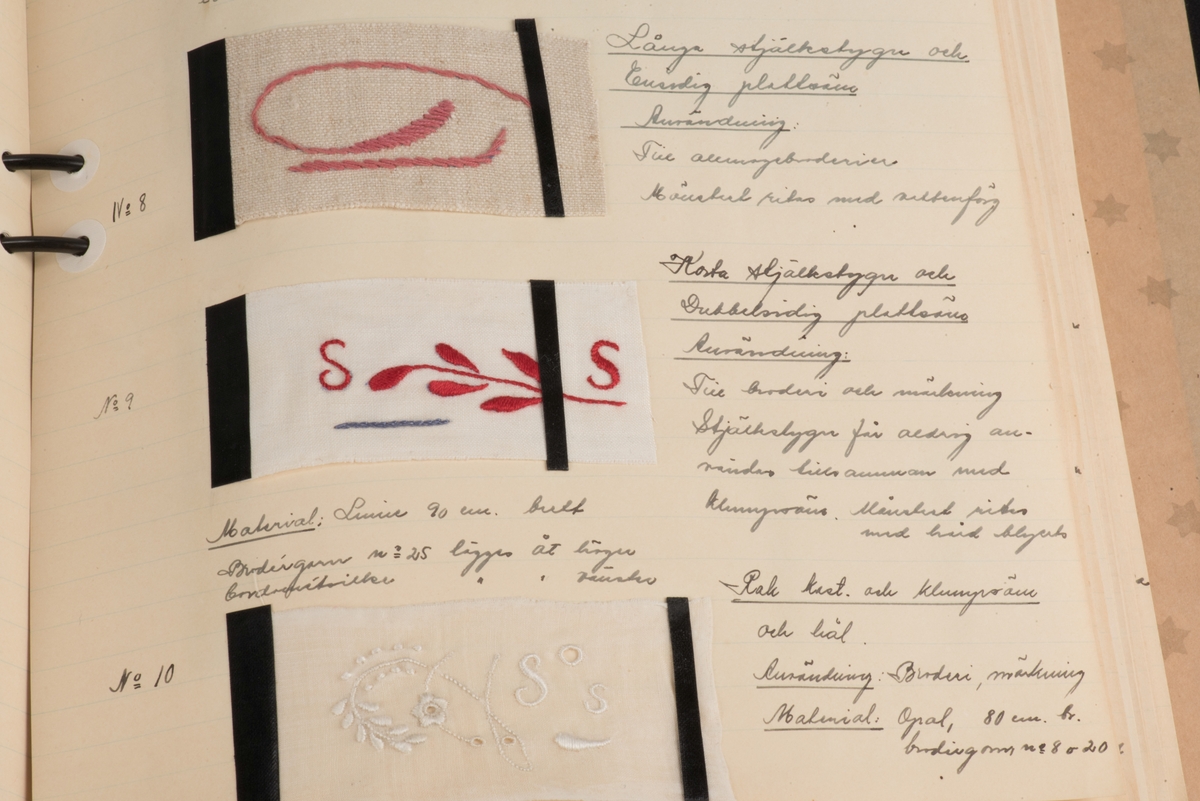 No 8
Långa stjälkstygn och
Ensidig plattsöm
Användning:
Till allmogebroderier
Mönstret ritas med vattenfärg
No 9
S S
Korta stjälkstygn och
Dubbelsidig plattsöm
Användning:
Till broderi och märkning
Stjälkstygn får aldrig an-
vändas tillsamman med
klumpsöm. Mönstret ritas
med hård blyerts
Material: Linne 90 cm. brett
Brodergarn no 25 lägges åt höger
" " vänster
No 10
S S
Rak kast. och klumpsöm
och hål.
Användning: Broderi, märkning
Material: Opal, 80 cm. br.
brodergarn no 8 o 20